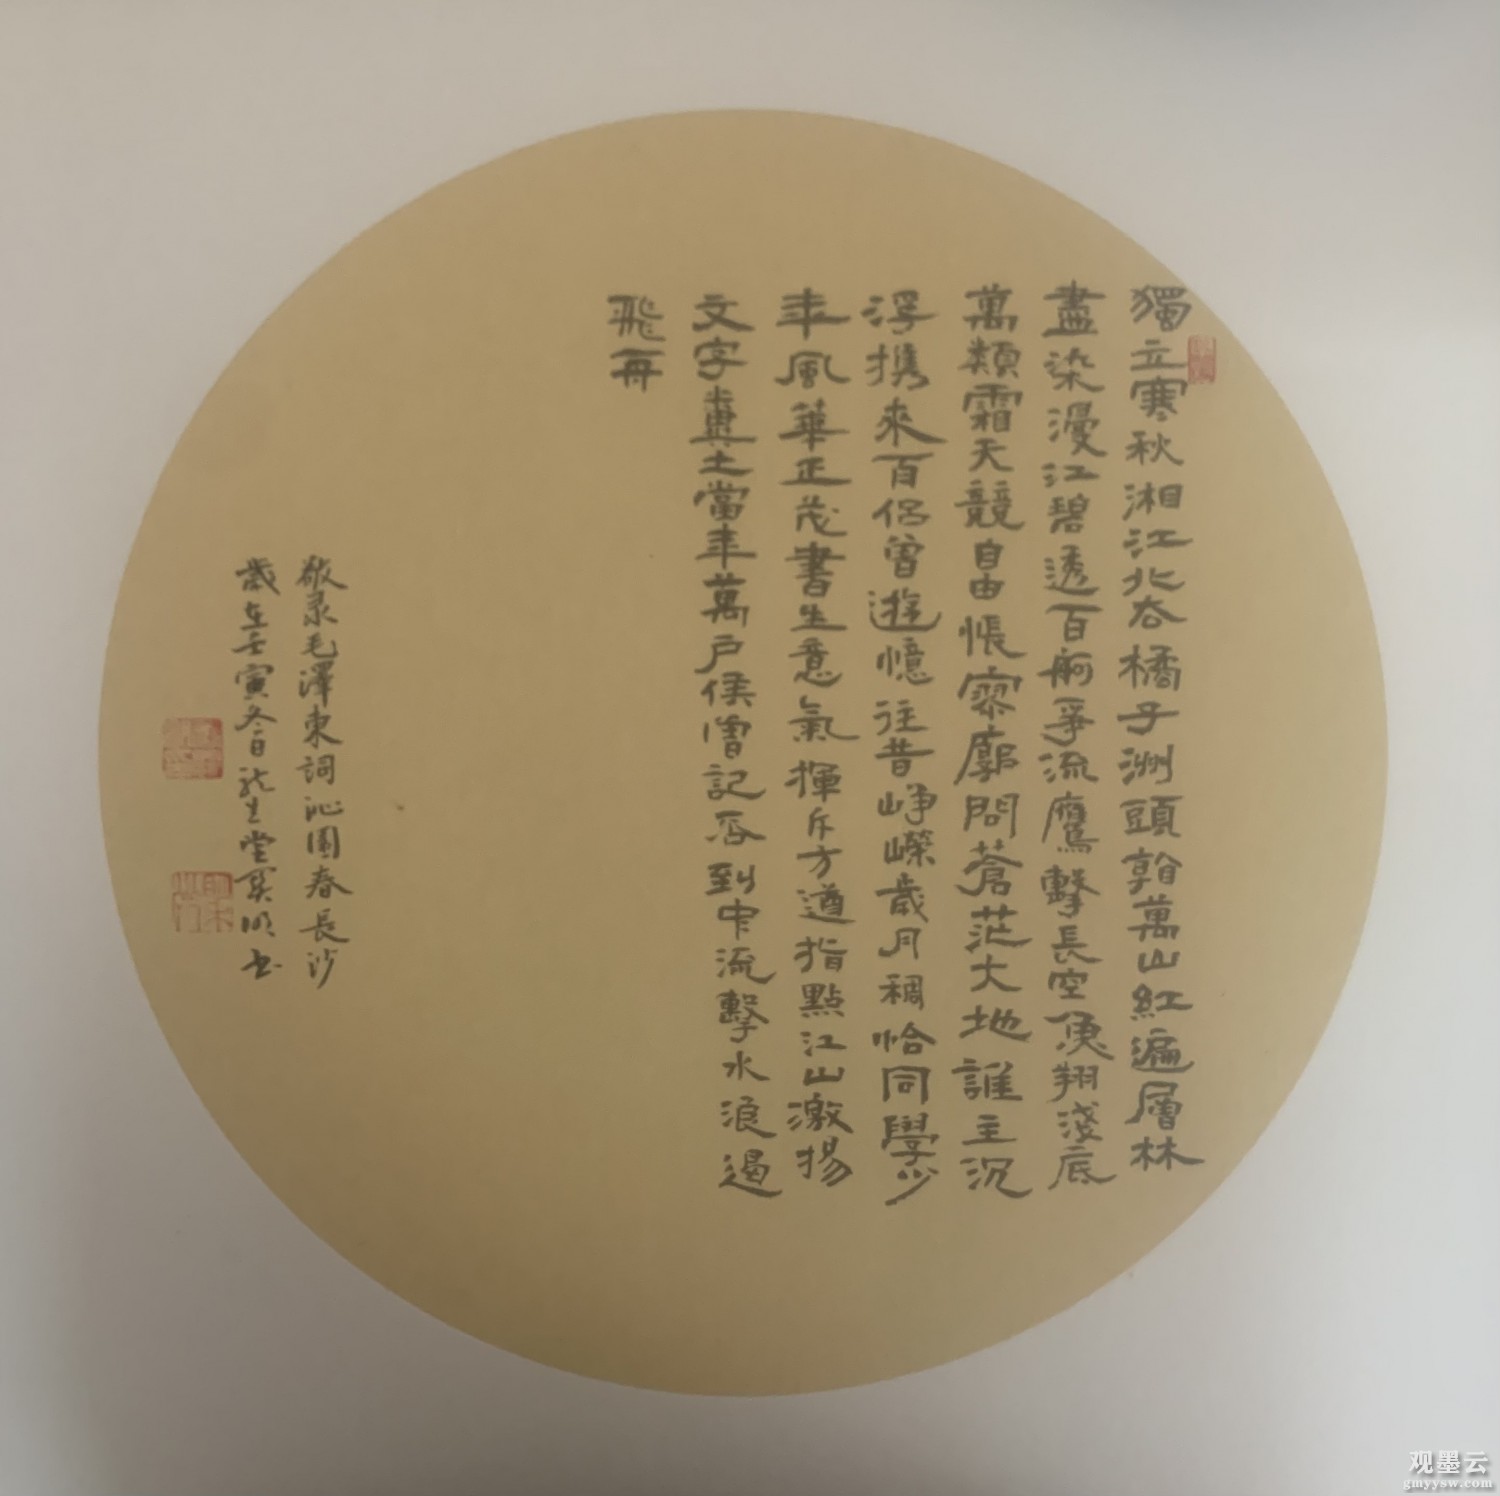 獨立寒秋湘江北去橘子洲頭看萬山紅遍層林
盡染漫江碧透百舸爭流鷹擊長空魚翔淺底
萬類霜天競自由悵寥廓問蒼茫大地誰主沉
浮攜來百侶曾遊憶往昔崢嶸歲月稠恰同學少
年風華正茂書生意氣揮斥方遒指點江山激揚
文字糞土當年萬戶侯曾記否到中流擊水浪遏
飛舟
敬录毛澤東詞沁園春長沙
歲在壬寅冬日龙生堂昊明书
观墨云
gmyysw.com